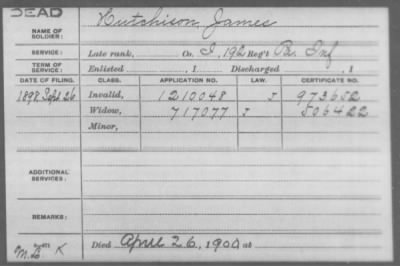 DEAD
NAME OF SOLDIER: Hutchison, James
SERVICE: Late rank, Co. I, 192 Reg't Pa. Inf
TERM OF SERVICE: Enlisted , 1 Discharged , 1
DATE OF FILING. CLASS. APPLICATION NO. LAW. CERTIFICATE NO.
1898, Sept. 26 Invalid, 1210048 J 973652
Widow, 717077 J 506422
Minor,
ADDITIONAL SERVICES:
REMARKS:
K Died April 26, 1900 at